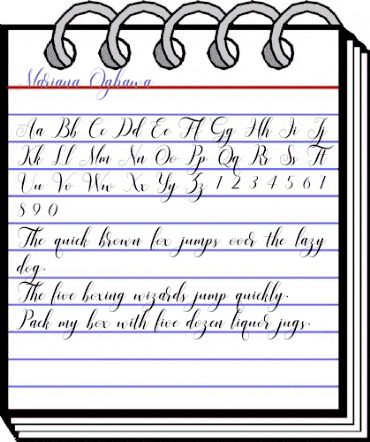 Mariana Oghawa
Aa Bb Cc Dd Ee Ff Gg Hh Ii Jj
Kk Ll Mm Nn Oo Pp Qq Rr Ss Tt
Uu Vv Ww Xx Yy Zz 1 2 3 4 5 6 7
8 9 0
The quick brown fox jumps over the lazy
dog.
The five boxing wizards jump quickly.
Pack my box with five dozen liquor jugs.